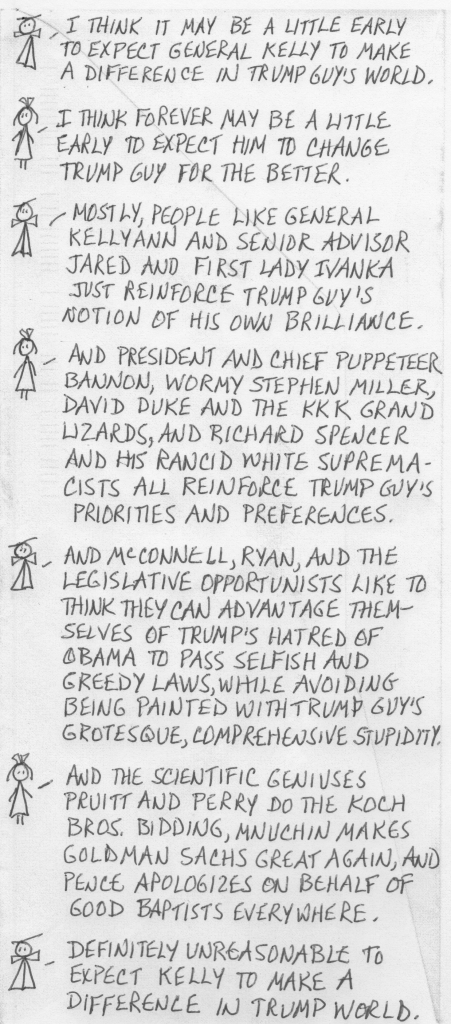 I THINK IT MAY BE A LITTLE EARLY
TO EXPECT GENERAL KELLY TO MAKE
A DIFFERENCE IN TRUMP GUY'S WORLD.
I THINK FOREVER MAY BE A LITTLE
EARLY TO EXPECT HIM TO CHANGE
TRUMP GUY FOR THE BETTER.
MOSTLY, PEOPLE LIKE GENERAL
KELLYANN AND SENIOR ADVISOR
JARED AND FIRST LADY IVANKA
JUST REINFORCE TRUMP GUY'S
NOTION OF HIS OWN BRILLIANCE.
AND PRESIDENT AND CHIEF PUPPETEER
BANNON, WORMY STEPHEN MILLER,
DAVID DUKE AND THE KKK GRAND
LIZARDS, AND RICHARD SPENCER
AND HIS RANCID WHITE SUPREMA-
CISTS ALL REINFORCE TRUMP GUY'S
PRIORITIES AND PREFERENCES.
AND MCCONNELL, RYAN, AND THE
LEGISLATIVE OPPORTUNISTS LIKE TO
THINK THEY CAN ADVANTAGE THEM-
SELVES OF TRUMP'S HATRED OF
OBAMA TO PASS SELFISH AND
GREEDY LAWS, WHILE AVOIDING
BEING PAINTED WITH TRUMP GUY'S
GROTESQUE, COMPREHENSIVE STUPIDITY.
AND THE SCIENTIFIC GENIUSES
PRUITT AND PERRY DO THE KOCH
BROS. BIDDING, MNUCHIN MAKES
GOLDMAN SACHS GREAT AGAIN, AND
PENCE APOLOGIZES ON BEHALF OF
GOOD BAPTISTS EVERYWHERE.
DEFINITELY UNREASONABLE TO
EXPECT KELLY TO MAKE A
DIFFERENCE IN TRUMP WORLD.